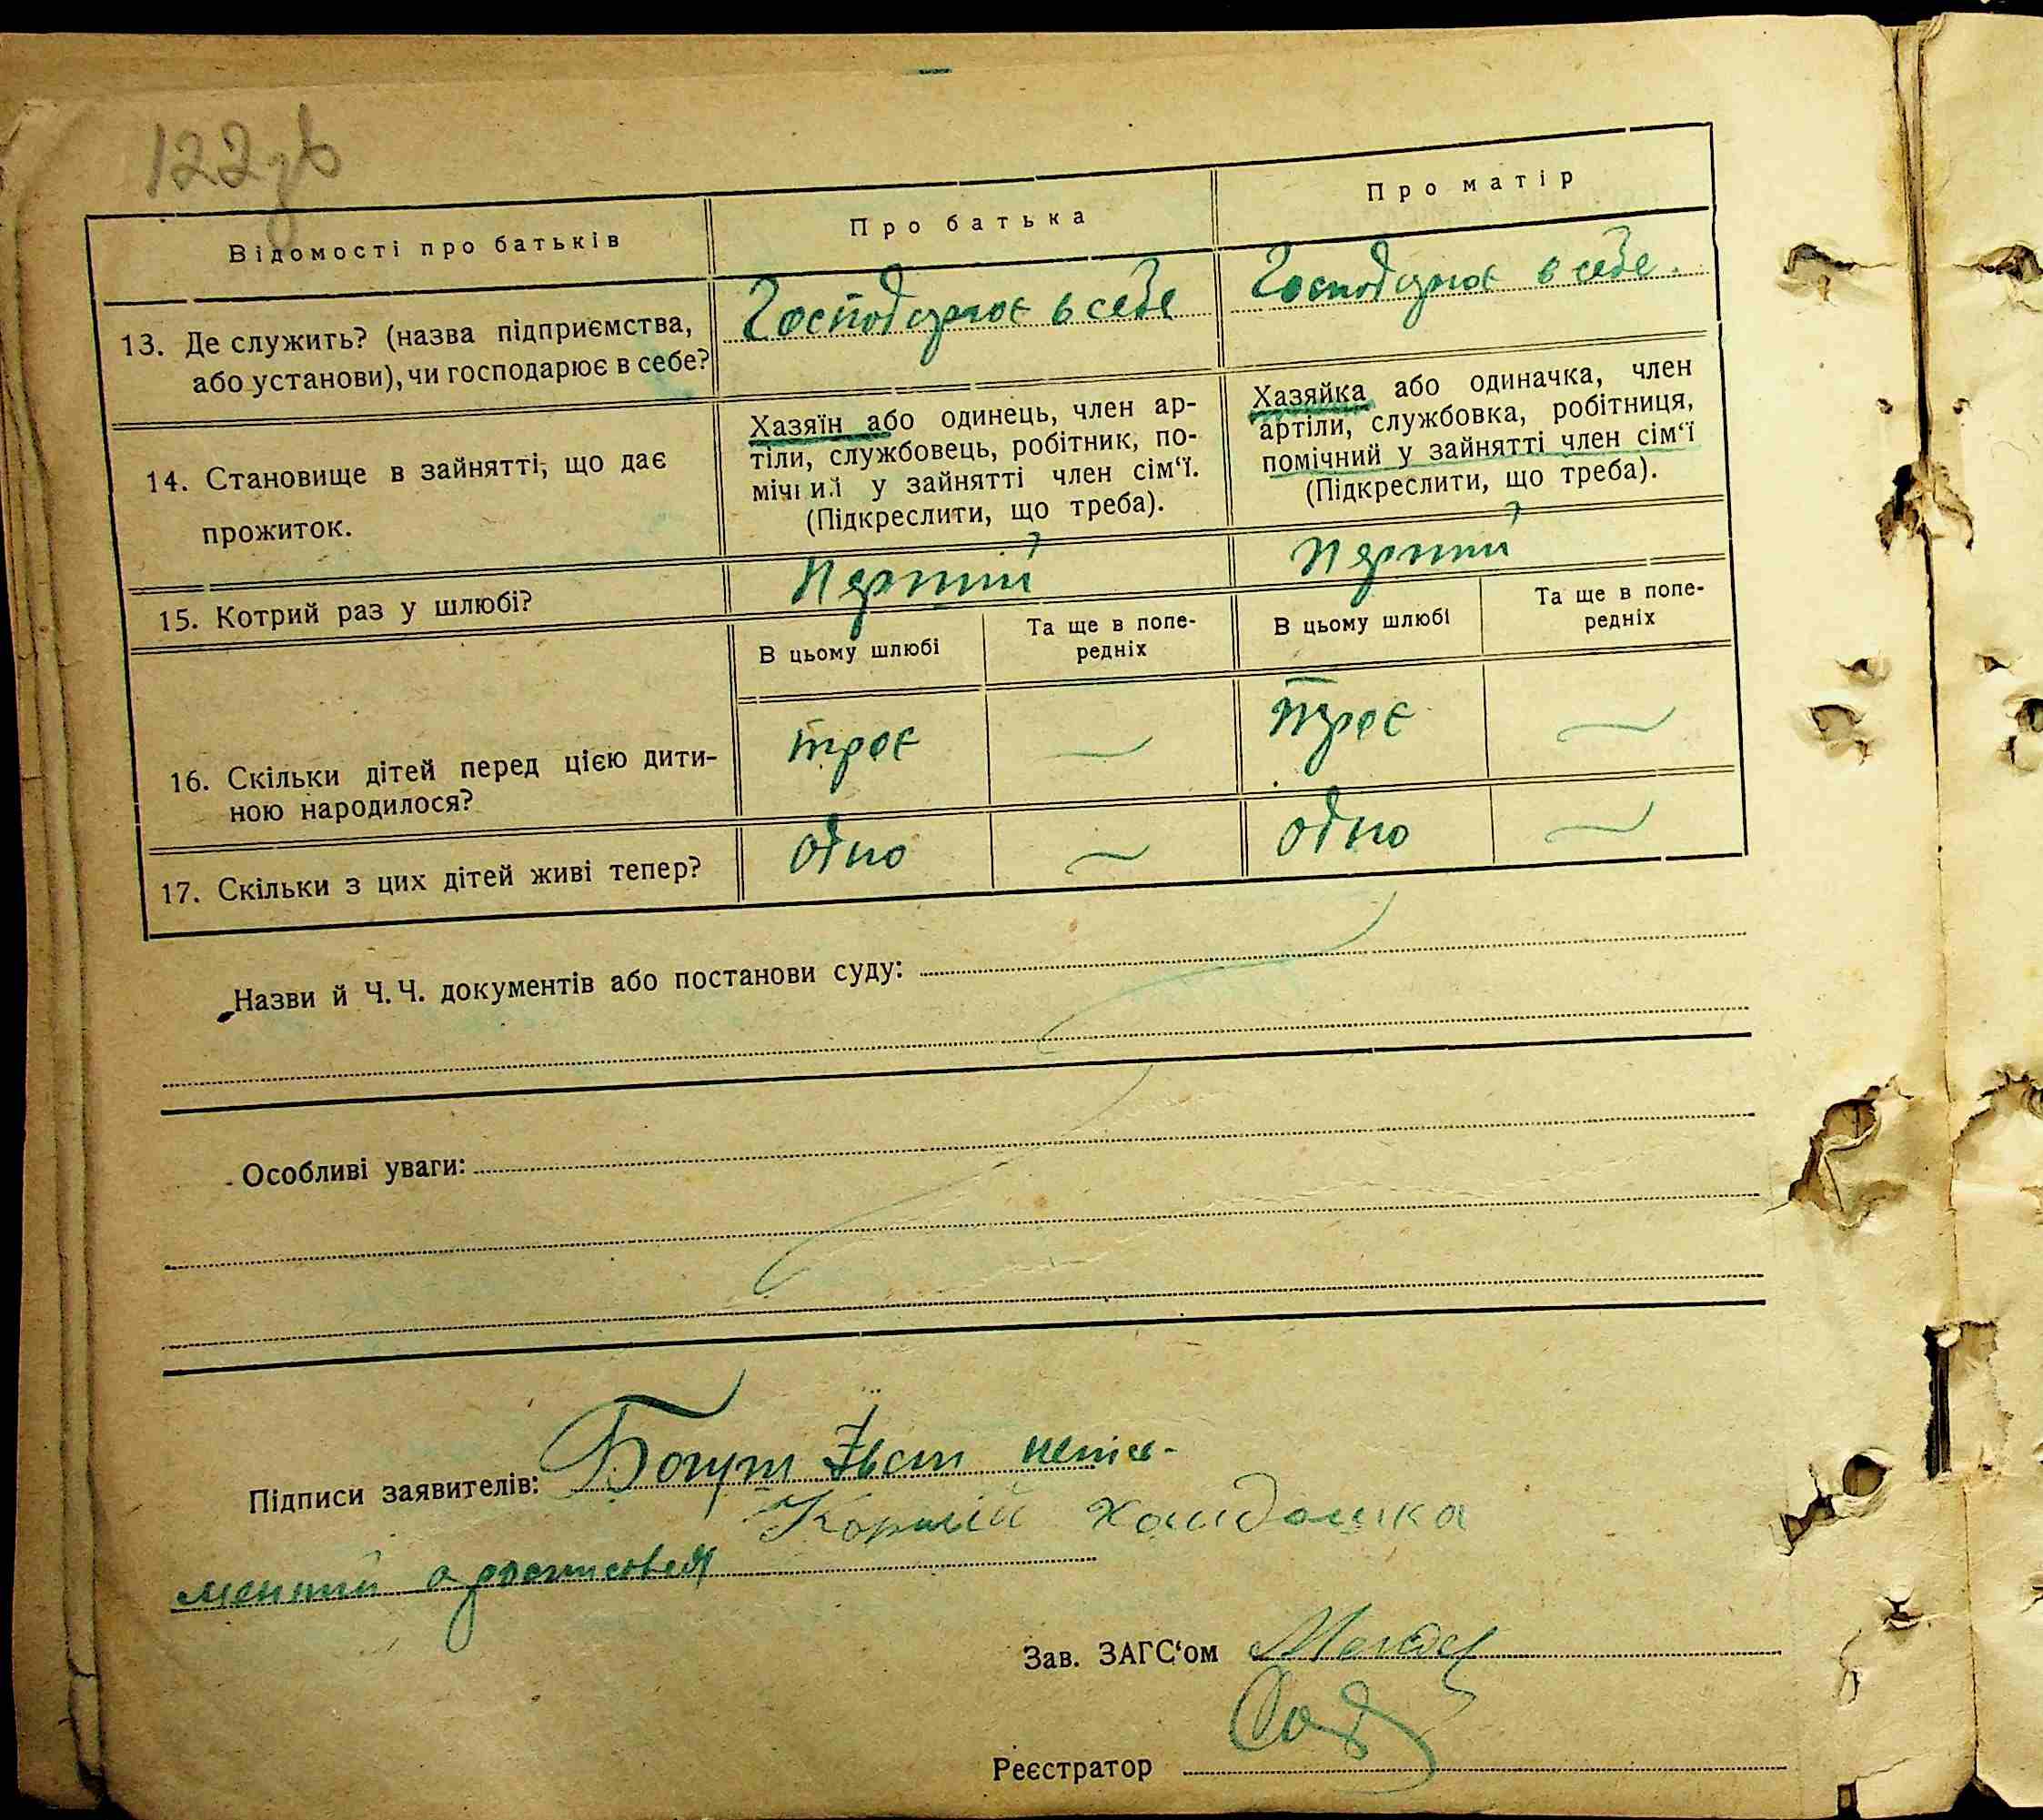 122зв
Відомості про батьків
Про батька
Про матір
13. Де служить? (назва підприємства,
або установи), чи господарює в себе?
Господурює в себе
Господурює в себе.
14. Становище в зайнятті, що дає
прожиток.
Хазяїн або одинець, член ар-
тіли, службовець, робітник, по-
мічний у зайнятті член сім‘ї.
(Підкреслити, що треба).
Хазяйка або одиначка, член
артіли, службовка, робітниця,
помічний у зайнятті член сім‘ї
(Підкреслити, що треба).
15. Котрий раз у шлюбі?
Перший
Перший
В цьому шлюбі
Та ще в попе-
редніх
В цьому шлюбі
Та ще в попе-
редніх
16. Скільки дітей перед цією дити-
ною народилося?
троє
—
троє
—
17. Скільки з цих дітей живі тепер?
одно
—
одно
—
Назви й Ч. Ч. документів або постанови суду:
Особливі уваги:
Підписи заявителів: Богут
Корній
Зав. ЗАГС‘ом
Реєстратор